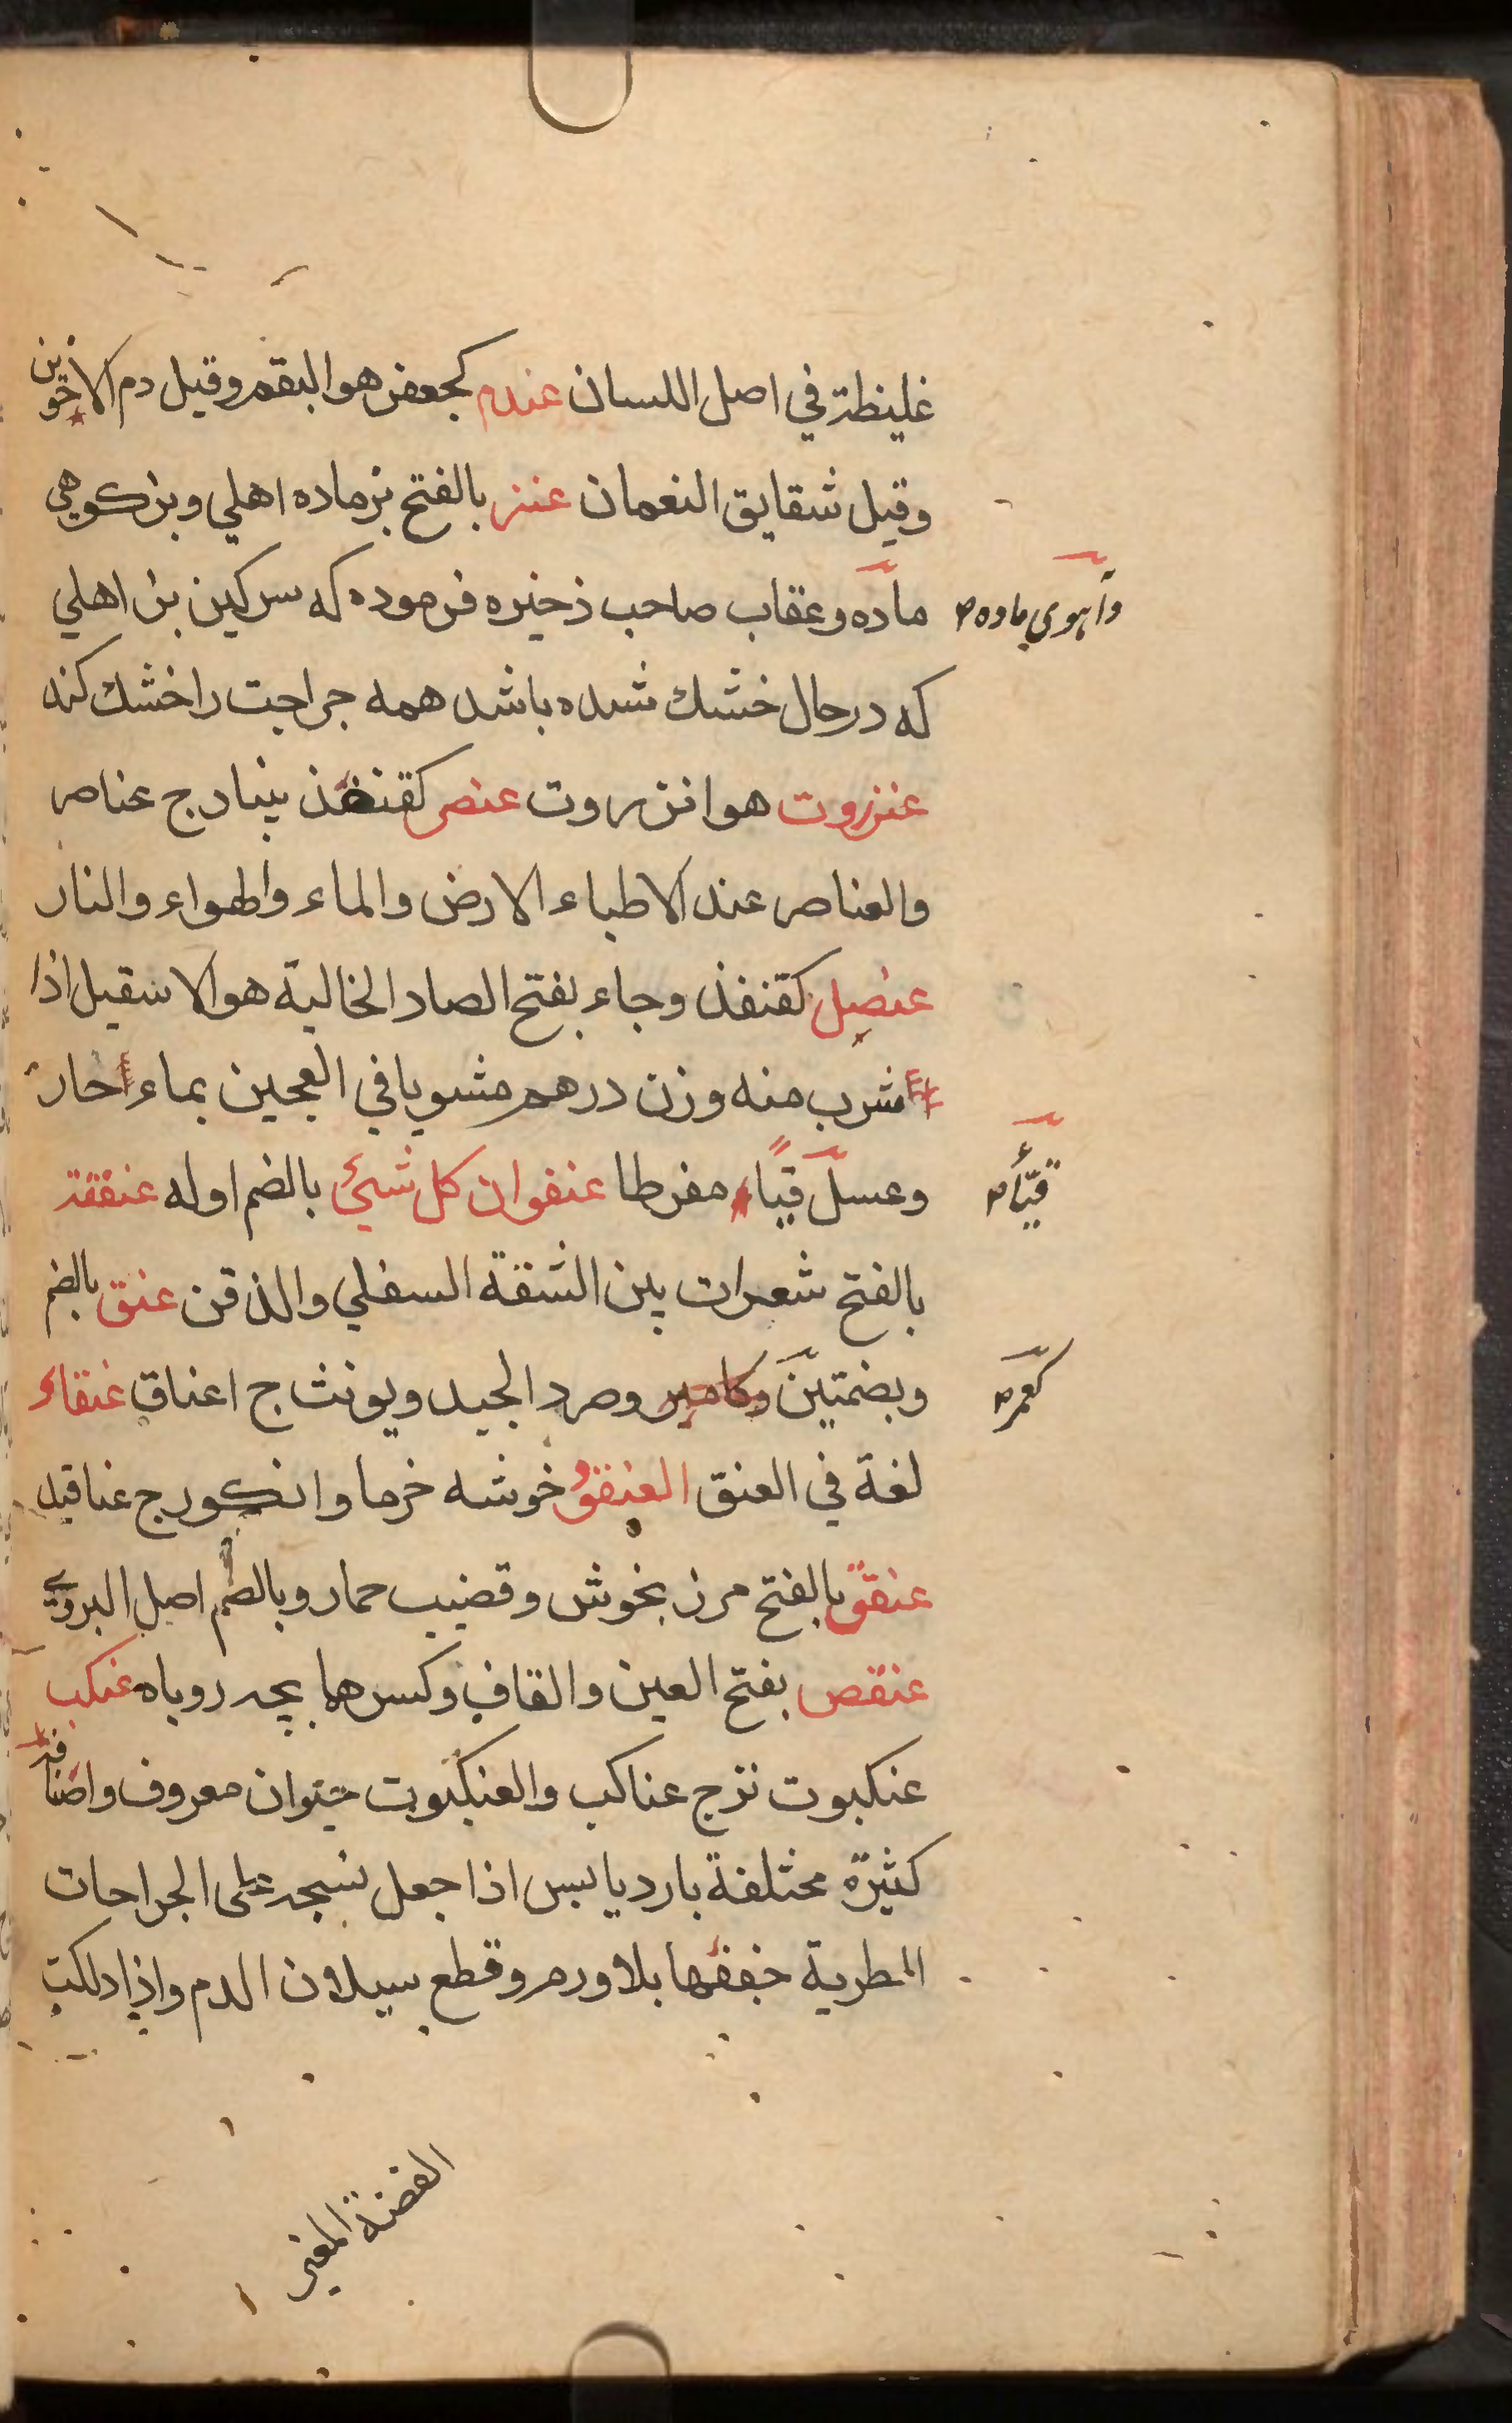 غليظة في اصل اللسان عندم كجعفر هو البقم وقيل دم الاخوين
وقيل شقايق النعمان عنز بالفتح بز ماده اهلي وبز كوهي
ماده وعقاب صاحب ذخيره فرموده كه سركين بز اهلي
وآهوي ماده صح
كه درحال خشك شده باشد همه جراحت را خشك كند
عنزروت هو انزروت عنصر كقنفذ بنياد ج عناصر
والعناصر عند الاطباء الارض والماء والهواء والنار
عنصل كقنفذ وجاء بفتح الصاد الخالية هو الاسقيل اذا
شرب منه وزن درهم مشويا في العجين بماء حار
وعسل قياء مفرطا عنفوان كل شيئ بالضم اوله عنفقة
قيّأ صح
بالفتح شعرات بين الشفة السفلي والذقن عنق بالضم
وبضمتين وكامير وصرد الجيد ويونث ج اعناق عنقاء
لغة في العنق العنقو خوشه خرما وانكور ج عناقيد
عنقق بالفتح مرزبخوش وقضيب حمار وبالضم اصل البردي
عنقص بفتح العين والقاف وكسرهما بچه روباه عنكب
عنكبوت نر ج عناكب والعنكبوت حيوان معروف واصنافه
كثيرة مختلفة بارد يابس اذا جعل نسجه على الجراحات
الطرية جففها بلا ورم وقطع سيلان الدم واذا دلكت